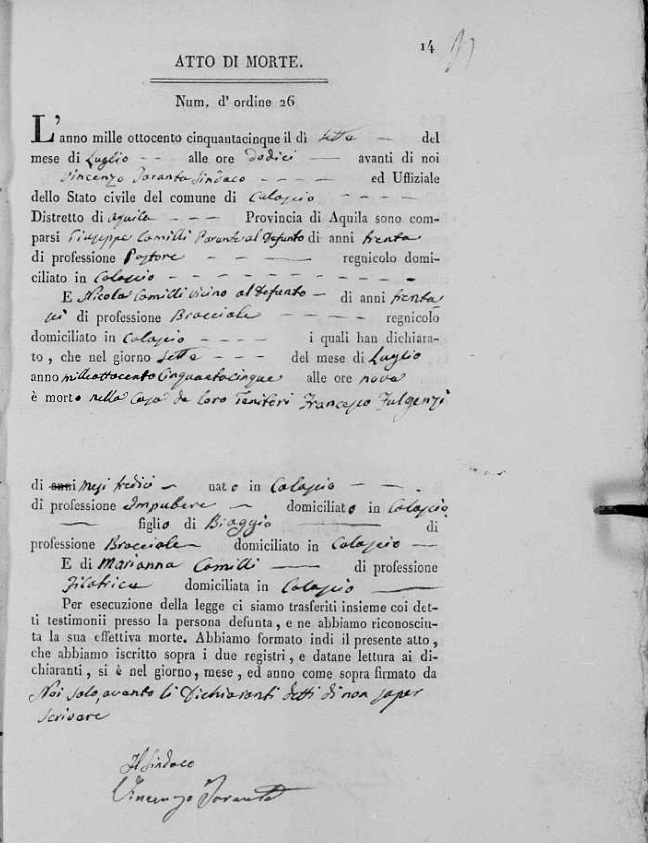 14
ATTO DI MORTE.
Num. d' ordine 26
L'anno mille ottocento cinquantacinque il dì sette — del
mese di Luglio - - alle ore dodici — avanti di noi
Vincenzo Taranta Sindaco - - - - ed Uffiziale
dello Stato civile del comune di Calascio - - - -
Distretto di Aquila - - - Provincia di Aquila sono com-
parsi Giuseppe Camilli Parente al Defunto di anni trenta
di professione Pastore - - — regnicolo domi-
ciliato in Calascio - - - - - - - - - -
E Nicola Camilli vicino al Defunto - di anni trenta
sei di professione Bracciale - - - - regnicolo
domiciliato in Calascio - - - - i quali han dichiara-
to, che nel giorno sette - - - del mese di Luglio
anno milleottocento Cinquantacinque alle ore nove
è morto nella Casa de loro Genitori Francesco Fulgenzi
di anni mesi tredici — nato in Calascio - - -
di professione Impubere — domiciliato in Calascio
— figlio di Biaggio — di
professione Bracciale — domiciliato in Calascio —
E di Marianna Camilli — di professione
Filatrice domiciliata in Calascio —
Per esecuzione della legge ci siamo trasferiti insieme coi det-
ti testimonii presso la persona defunta, e ne abbiamo riconosciu-
ta la sua effettiva morte. Abbiamo formato indi il presente atto,
che abbiamo iscritto sopra i due registri, e datane lettura ai di-
chiaranti, si è nel giorno, mese, ed anno come sopra firmato da
Noi solo, avendo li Dichiaranti detti di non saper
scrivere
Il Sindaco
Vincenzo Taranta